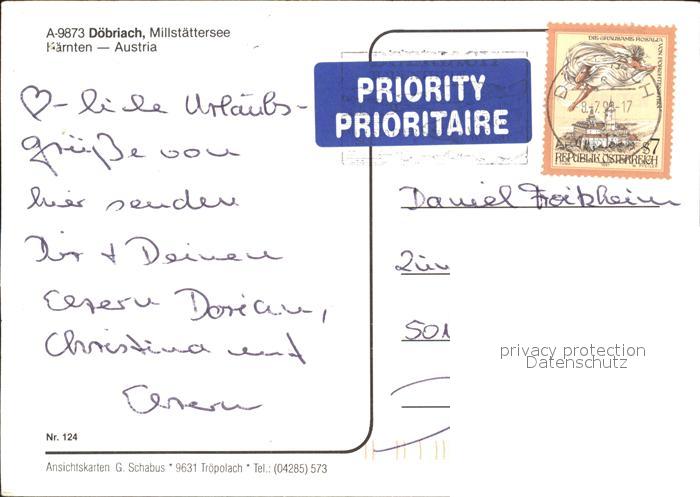 A-9873 Döbriach, Millstättersee
Kärnten — Austria
PRIORITY
PRIORITAIRE
DIE GRAUSAME ROSALIA VON FORCHTENSTEIN
S7
REPUBLIK ÖSTERREICH
♡-liche Urlaubs-
grüße von
hier senden
Dir + Deinen
Eltern Dorian,
Christina und
Eltern
Daniel
501
privacy protection
Datenschutz
Nr. 124
Ansichtskarten G. Schabus * 9631 Tröpolach * Tel.: (04285) 573